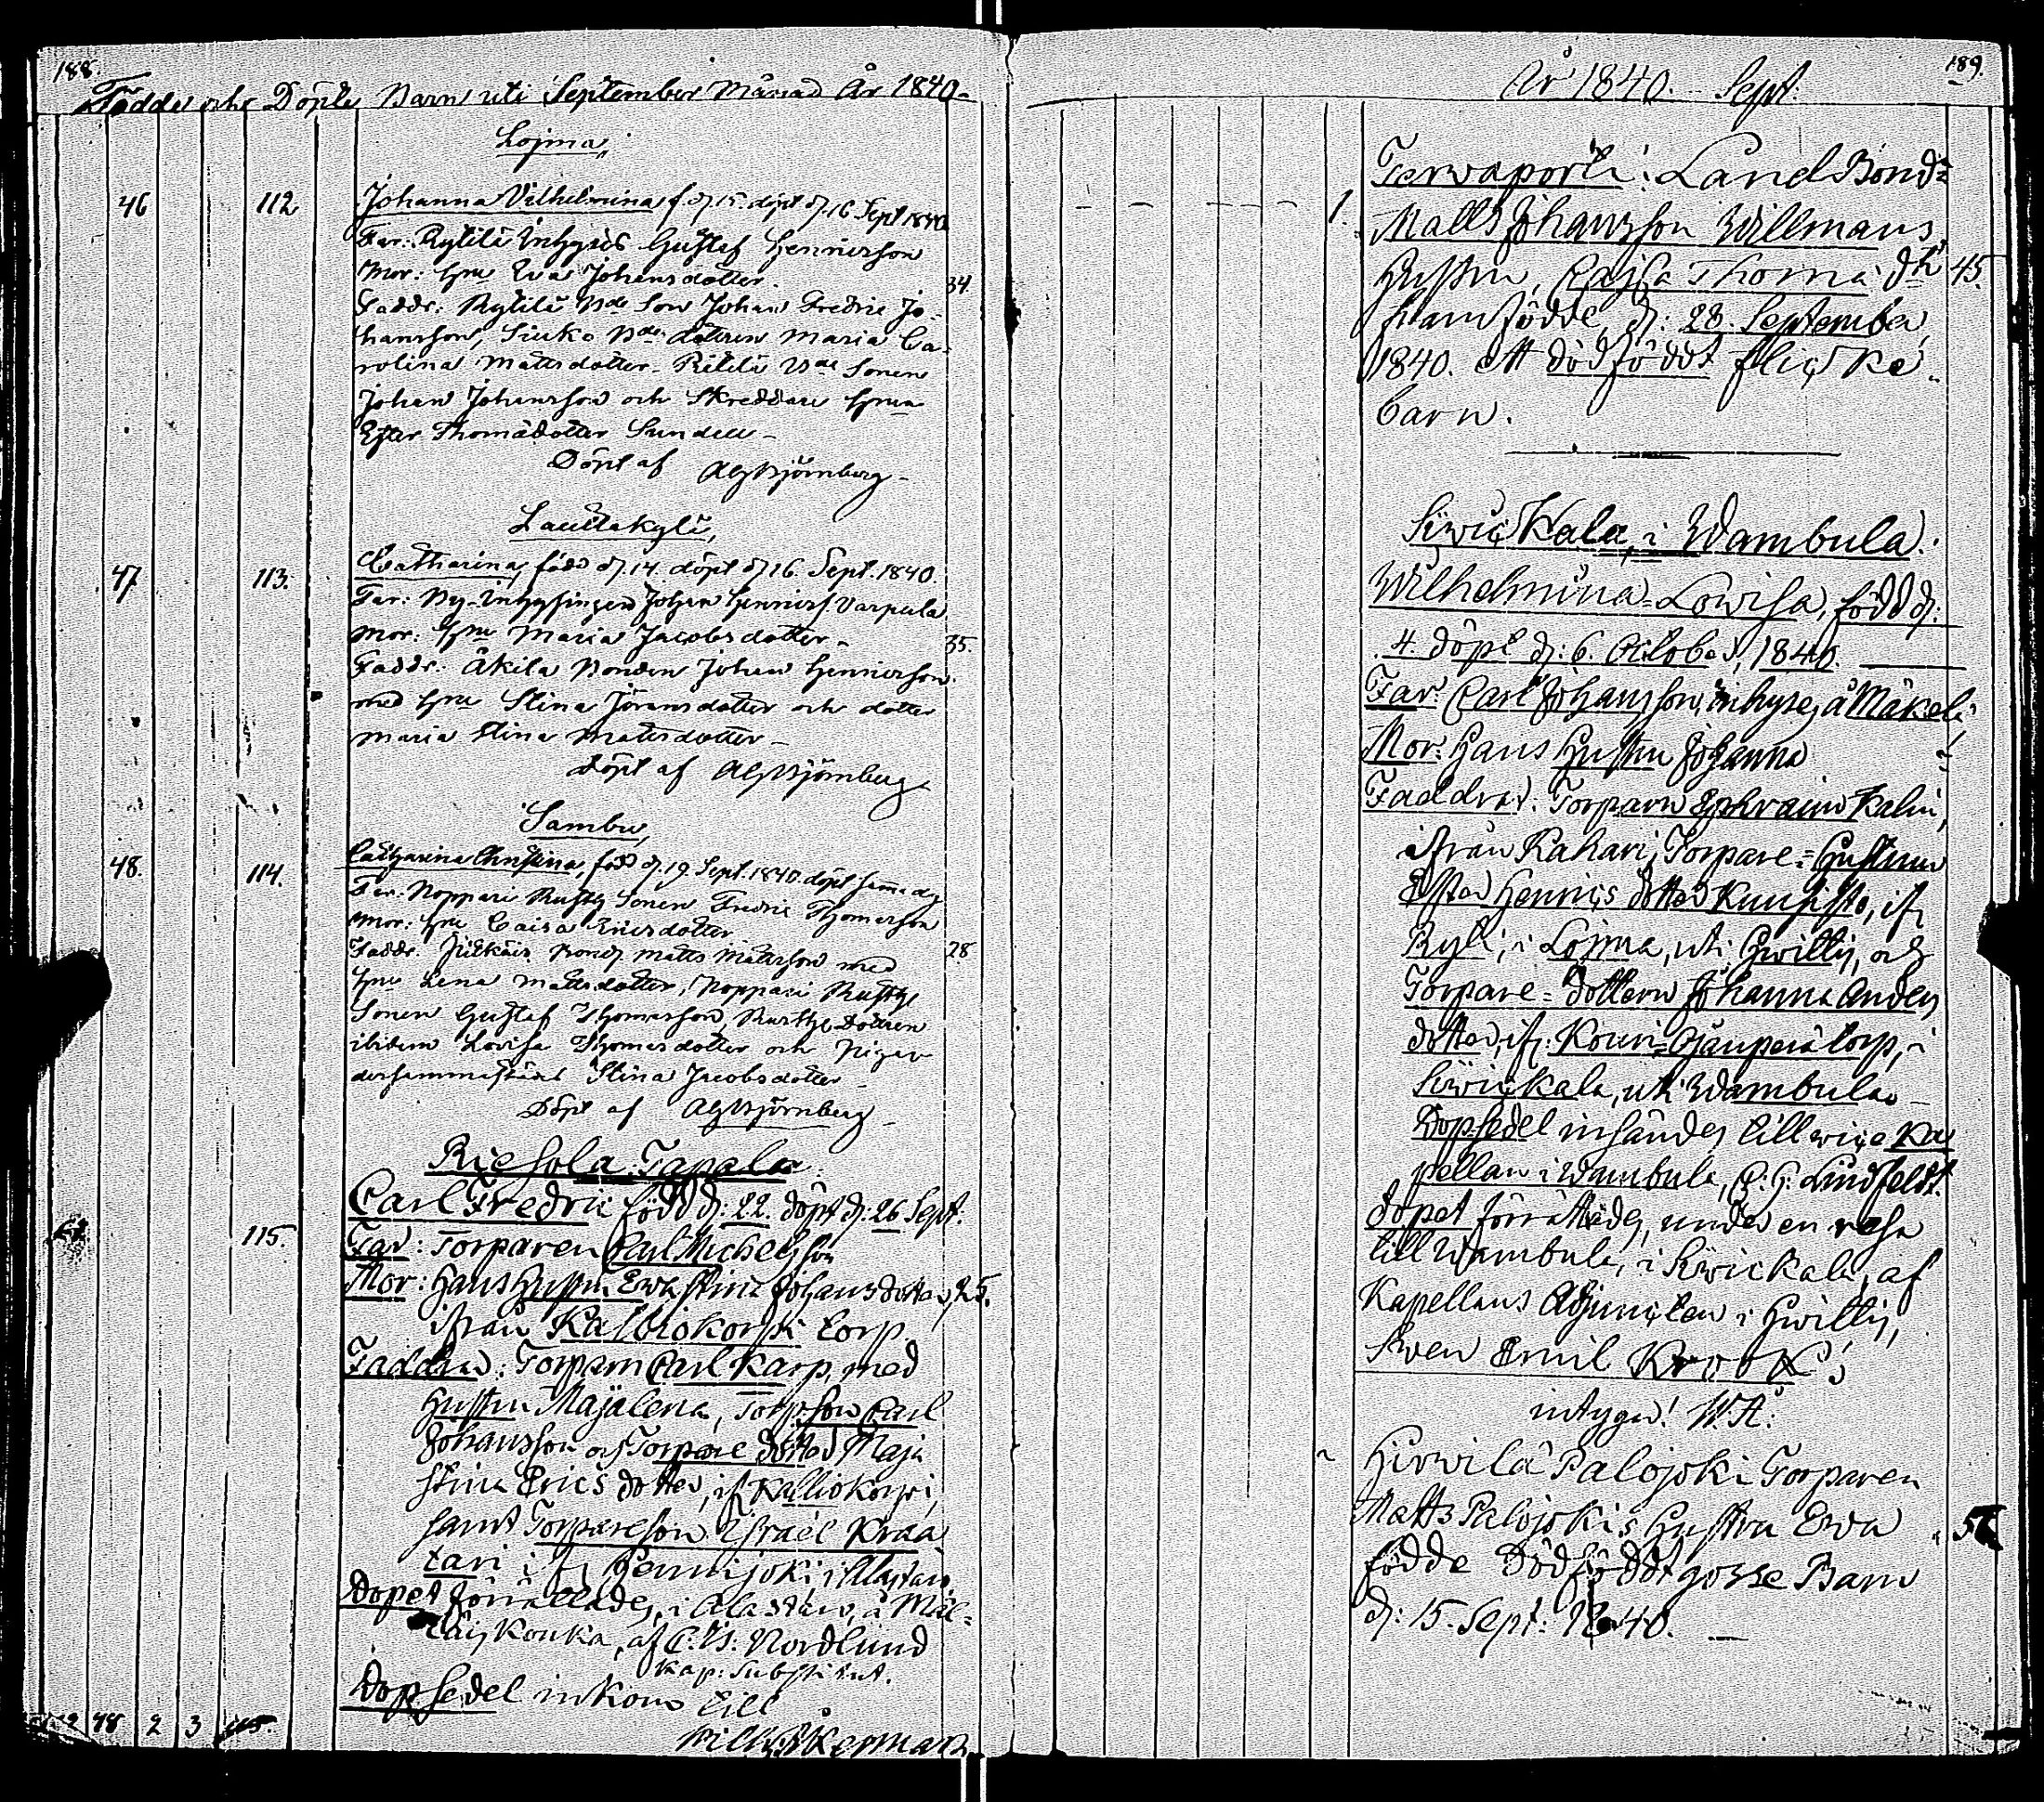 188.
Födde och Döpte Barn uti September Månad År 1840.
Lojma,
46 112 Johanna Vilhelmina, f. d. 15. döpt d. 16 Sept 1840
Far: Rytilä Inhyses Gustaf Henricsson
Mor: Hu Eva Johansdotter. 34.
Faddr: Rytilä Bde Son Johan Fredric Jo-
hansson, Bde dottren Maria Ca-
rolina Mattsdotter. Bde Sonen
Johan Johansson och Skreddare
Ester Thomædotter Sundell
Döpt af AGBjörnberg
Lauttakylä,
47 113. Catharina, född d. 14. döpt d. 16. Sept. 1840.
Far: Johan Henricss. Varpula
Mor: Hu Maria Jacobsdotter. 35.
Faddr: Äkilä Bonden Johan Henricsson
med Hu Stina Jöransdotter och dotter
Maria Stina Mattsdotter
Döpt af AGBjörnberg
Sambu,
48. 114. Catharina Christina, född d. 19. Sept. 1840. döpt samma dag
Far: Noppari Rusth. Sonen Fredric Thomasson
Mor: Hu Caisa Ericsdotter 28
Faddr. Bond. Matts Mattsson med
Hu Lena Mattsdotter, Noppari Rusth.
Sonen Gustaf Thomasson, Rusth. Dottren
ibidem Lovisa Thomasdotter och Pigan
dersammastädes Stina Jacobsdotter
Döpt af AGBjörnberg
Riesola Tapala
Carl Fredric född d: 22. döpt d: 26 Sept.
115. Far: Torparen Carl Michelsson
Mor: Hans Hustru Ewa Stina Johansdotter, 25.
ifrån Kalliokorpi torp.
Faddrar: Torparn Carl Karp, med
Hustru Maja Lena, Torp. son Carl
Johansson och Torpare dotter Maja
Stina Ericsdotter, if. Kalliokorpi,
samt Torpareson Israel Kraa
tari if. Pennijoki, i Alastaro.
Dopet förrättades, i Alastaro, å Mäl-
Kouka, af C. W. Nordlund
Kap: Substitut.
Dopsedel inkom till
Wilh. Åkerman
48 2 3 115.
189.
År 1840. Sept.
1. Terwaporti: Land Bond:
Matts Johansson Willmans
Hustru, Cajsa Thomæ dr 45.
framfödde, d: 28. September
1840. ett dödfödt flicke-
barn.
Säwickala, i Wambula.
Wilhelmina Lowisa, född d:
4. döpt d: 6. October, 1840.
Far: Carl Johansson, inhyses å Mäkelä
Mor: Hans Hustru Johanna
Faddrar. Torparn Ephraim Kalin,
ifrån Kahari, Torpare=Hustrun
Ester Henrics dotter Kuusisto, if.
Ryli, i Lojma, uti Hwittis, och
Torpare=dottern Johanna Anders
dotter, if. Kouri torp, i
Säwickala, uti Wambula
Dopsedel insändes till wice Ka
pellan i Wambula, C. G. Lindfeldt.
Dopet förrättades, under en resa
till Wambula, i Säwickala, af
Kapellans Adjuncten i Hwittis,
Swen Emil Krook;
intygar! W.Å.
Hirwilä Palojoki Torparen
Matts Palojokis Hustru Ewa
födde Dödfödt gosse Barn
d: 15. Sept: 1840.